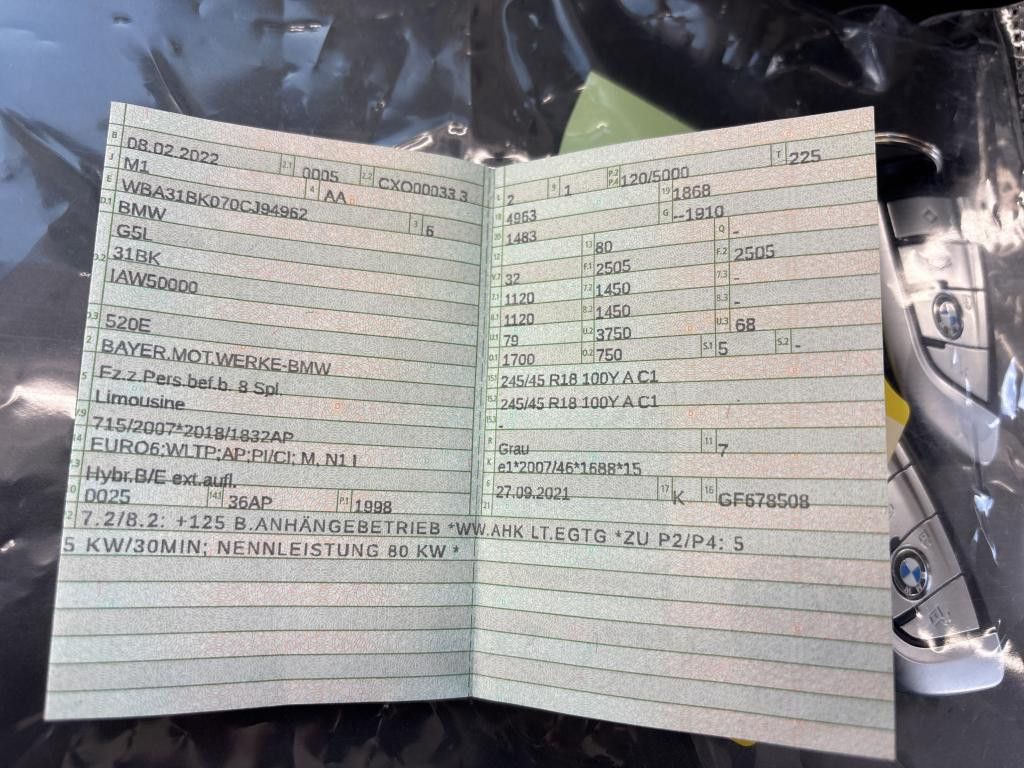 B 08.02.2022 2.1 0005 2.2 CXO00033 3
J M1 4 AA
E WBA31BK070CJ94962 3 6
D.1 BMW
G5L
D.2 31BK
IAW50000
D.3 520E
2 BAYER.MOT.WERKE-BMW
5 Fz.z.Pers.bef.b. 8 Spl.
Limousine
V.9 715/2007*2018/1832AP
14 EURO6;WLTP;AP;PI/CI; M, N1 I
P.3 Hybr.B/E ext.aufl.
10 0025 14.1 36AP P.1 1998
L 2 9 1 P.2 P.4 120/5000 T 225
18 4963 19 1868
20 1483 G --1910
12 - 13 80 Q -
V.7 32 F.1 2505 F.2 2505
7.1 1120 7.2 1450 7.3 -
8.1 1120 8.2 1450 8.3 -
U.1 79 U.2 3750 U.3 68
O.1 1700 O.2 750 S.1 5 S.2 -
15.1 245/45 R18 100Y A C1
15.2 245/45 R18 100Y A C1
15.3 -
R Grau 11 7
K e1*2007/46*1688*15
6 27.09.2021 17 K 16 GF678508
21
22 7.2/8.2: +125 B.ANHÄNGEBETRIEB *WW.AHK LT.EGTG *ZU P2/P4: 5
5 KW/30MIN; NENNLEISTUNG 80 KW *